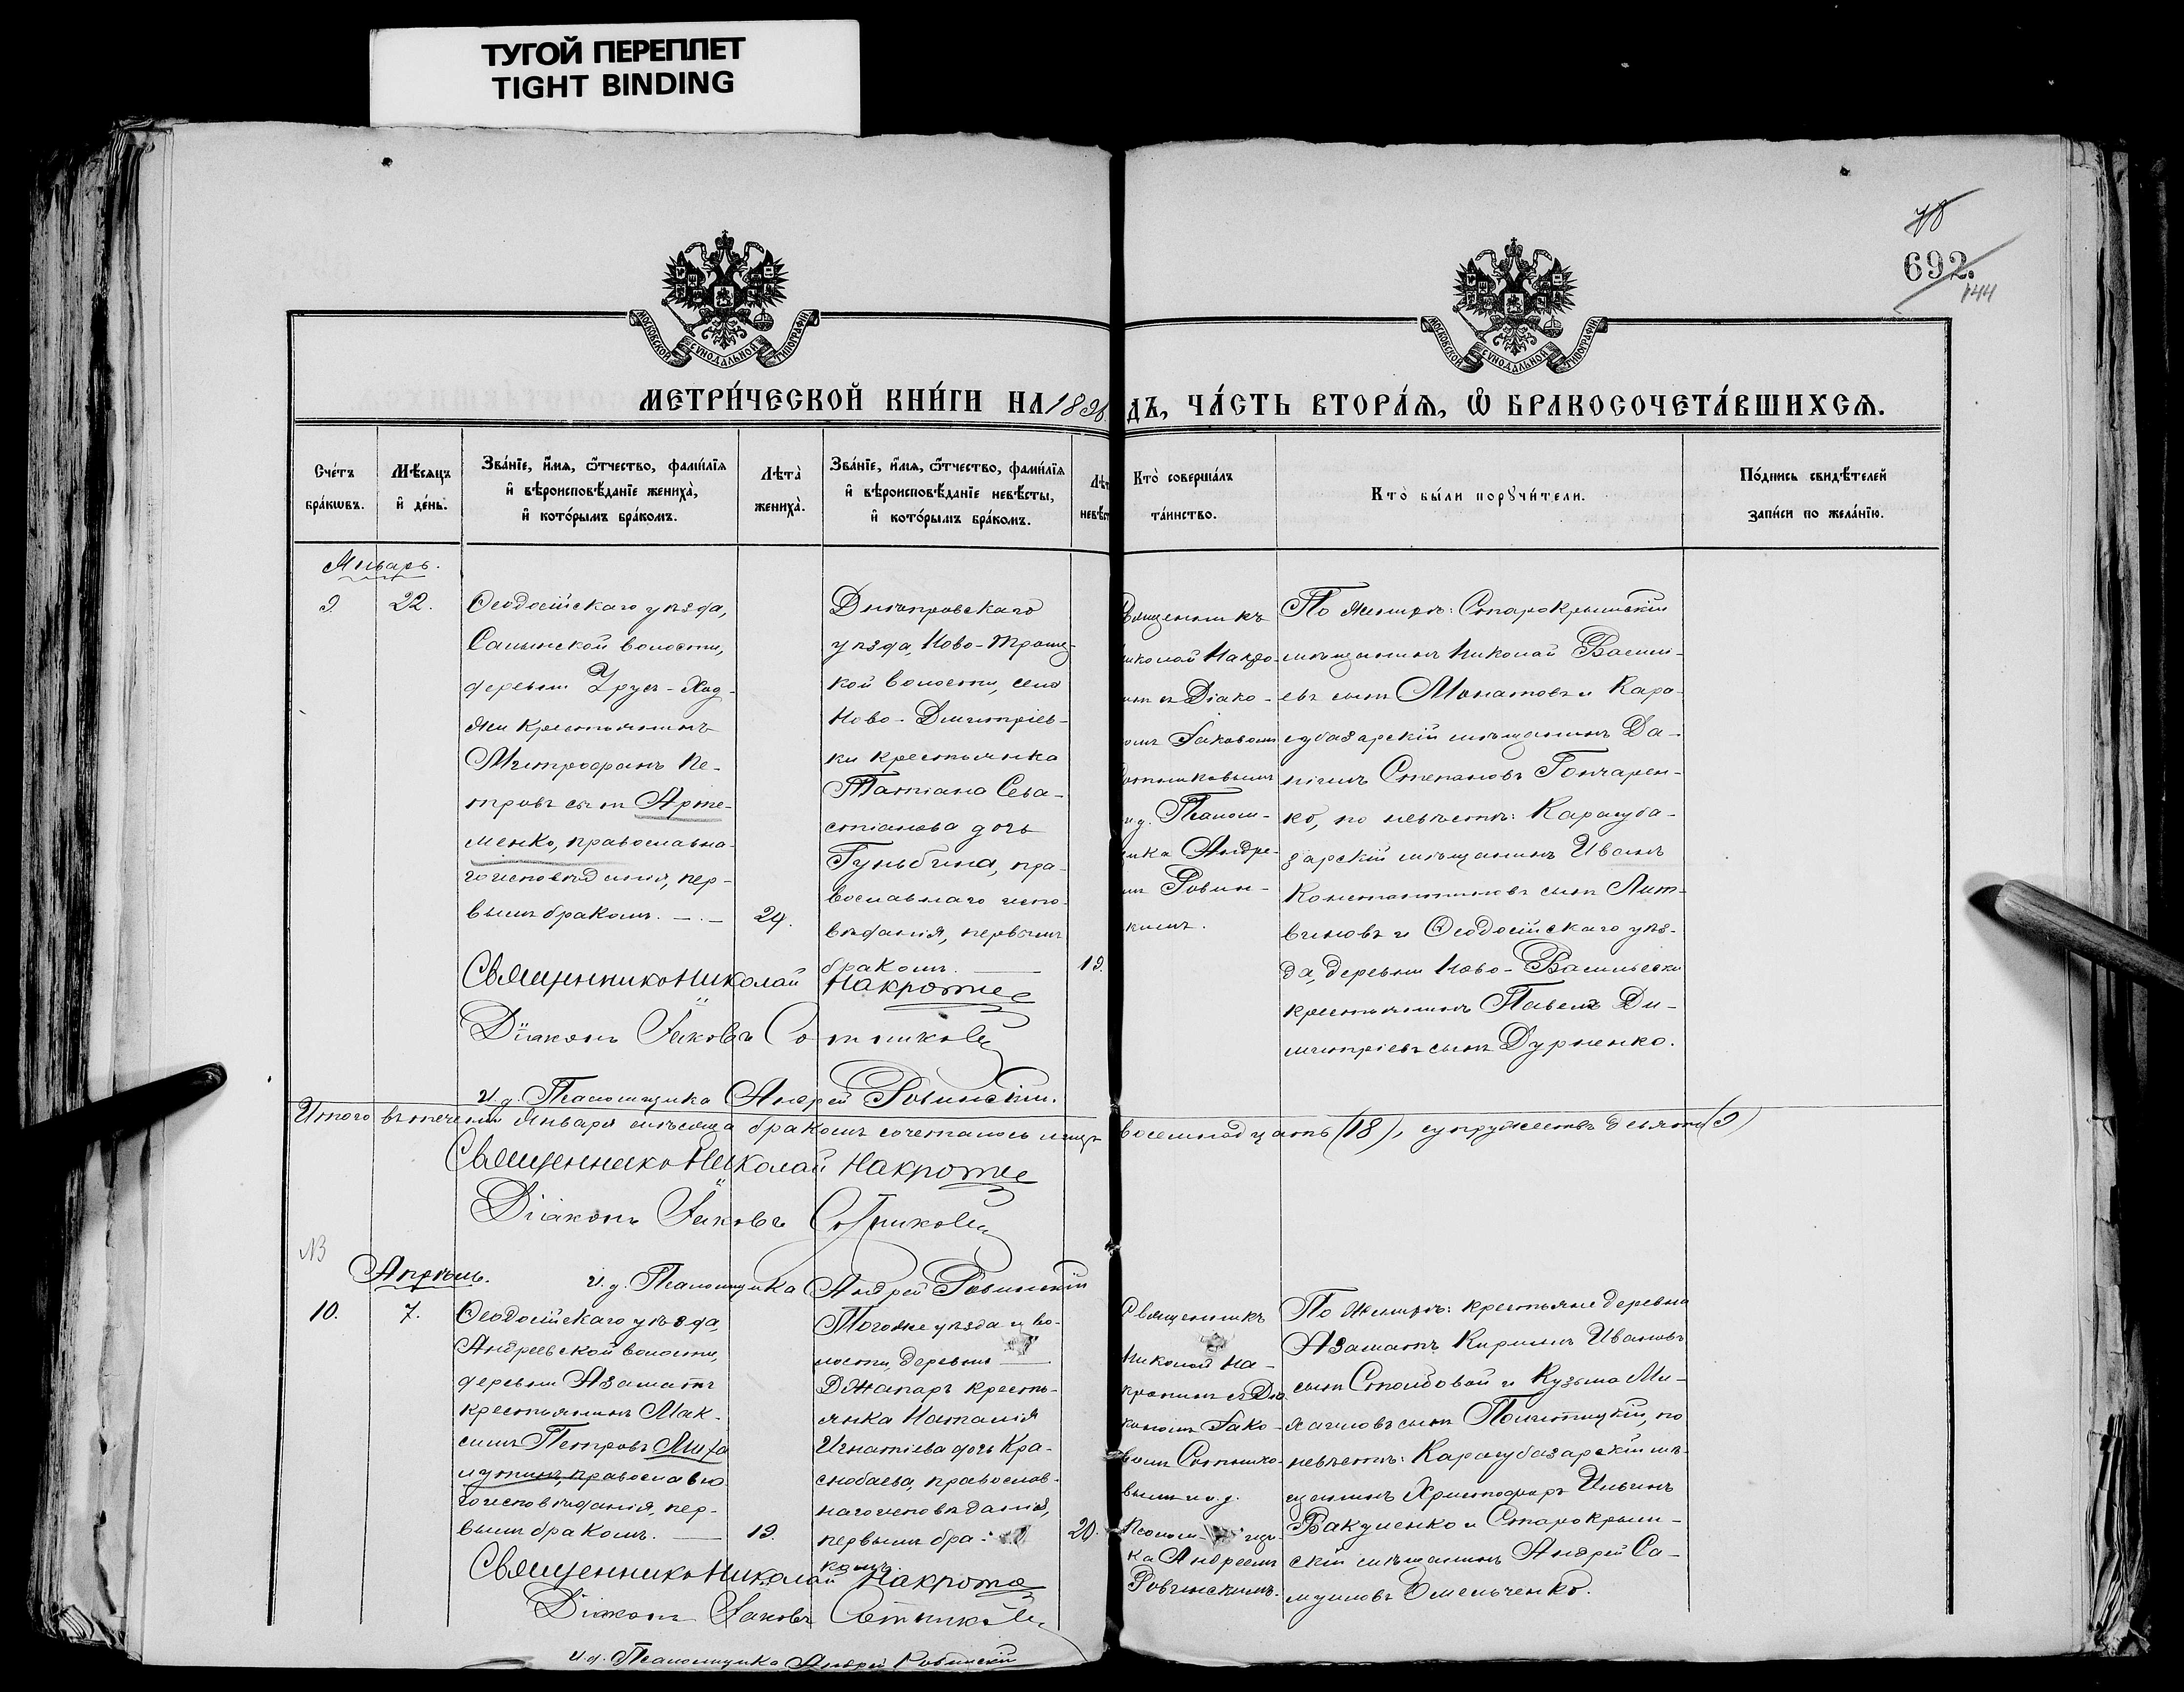 ТУГОЙ ПЕРЕПЛЕТ
TIGHT BINDING
78
692.
144
МОСКОВСКОЙ СѴНОДАЛЬНОЙ ТИПОГРАФІИ
МОСКОВСКОЙ СѴНОДАЛЬНОЙ ТИПОГРАФІИ
МЕТРИ́ЧЕСКОЙ КНИ́ГИ НА 1896 ДЪ, ЧА́СТЬ ВТОРА́Ѧ, Ѽ БРАКОСОЧЕТА́ВШИХСѦ.
Сче́тъ
бра́кѡвъ.
Мѣ́сѧцъ
и҆ де́нь.
Зва́нїе, и҆́мѧ, ѻ҆́тчество, фами́лїѧ
и҆ вѣроисповѣ́данїе жениха̀,
и҆ кото́рымъ бра́комъ.
Лѣта̀
жениха̀.
Зва́нїе, и҆́мѧ, ѻ҆́тчество, фами́лїѧ
и҆ вѣроисповѣ́данїе невѣ́сты,
и҆ кото́рымъ бра́комъ.
Лѣт
невѣ́ст
Кто̀ соверша́лъ
та́инство.
Кто̀ бы́ли порꙋчи́тели.
По́дпись свидѣ́телей
за́писи по жела́нїю.
Январь.
9.
22.
Ѳеодосійскаго уѣзда,
Салынской волости,
деревни Урусъ-Ход-
жи крестьянинъ
Митрофанъ Пе-
тровъ сынъ Арте-
менко, православна-
го исповѣданія, пер-
вымъ бракомъ. —.—
24.
Днѣпровскаго
уѣзда, Ново-Троиц-
кой волости, села
Ново-Дмитріев-
ки крестьянка
Татіана Сева-
стіанова дочь
Гуньбина, пра-
вославнаго испо-
вѣданія, первымъ
бракомъ. —
19.
вященникъ
иколай Накро-
инъ съ Діако-
омъ Іаковомъ
отниковымъ
и.д. Псалом-
ика Андре-
мъ Ровин-
кимъ.
По женихѣ: Старокрымскій
мѣщанинъ Николай Васили-
евъ сынъ Монатовъ и Кара-
субазарскій мѣщанинъ Да-
ніилъ Степановъ Гончарен-
ко, по невѣстѣ: Карасуба-
зарскій мѣщанинъ Иванъ
Константиновъ сынъ Лит-
виновъ и Ѳеодосійскаго уѣз-
да, деревни Ново-Васильевки
крестьянинъ Павелъ Ди-
митріевъ сынъ Дурненко.
Священникъ Николай Накротие
Діаконъ Іаковъ Сотниковъ
И.д. Псаломщика Андрей Ровинскій.
Итого въ теченіи Января мѣсяца бракомъ сочеталось лицъ восемнадцать (18), супружествъ девять (9)
Священникъ Николай Накротие
Діаконъ Іаковъ Сотниковъ
И.д. Псаломщика Андрей Ровинскій
NB
Апрѣль.
10.
7.
Ѳеодосійскаго уѣзда,
Андреевской волости,
деревни Азаматъ
крестьянинъ Мак-
симъ Петровъ
православна
го исповѣданія, пер-
вымъ бракомъ. —
19.
Того же уѣзда и во-
лости, деревни —
Джапаръ кресть-
янка Наталія
Игнатіева дочь Кра-
снобаева, православ-
наго исповѣданія,
первымъ бра-
комъ.
20.
Священникъ
Николай На-
кротинъ съ Діа
кономъ Іако-
вомъ Сотнико-
вымъ и.д.
Псалом-щи-
ка Андреемъ
Ровинскимъ.
По женихѣ: крестьяне деревни
Азаматъ Кириллъ Ивановъ
сынъ Столбовой и Кузьма Ми-
хаиловъ сынъ по
невѣстѣ: Карасубазарскій мѣ-
щанинъ Христофоръ Ильинъ
Вакуленко и Старокрым-
скій мѣщанинъ Андрей Са-
муиловъ Омельченко.
Священникъ Николай Накротие
Діаконъ Іаковъ Сотниковъ
И.д. Псаломщика Андрей Ровинскій